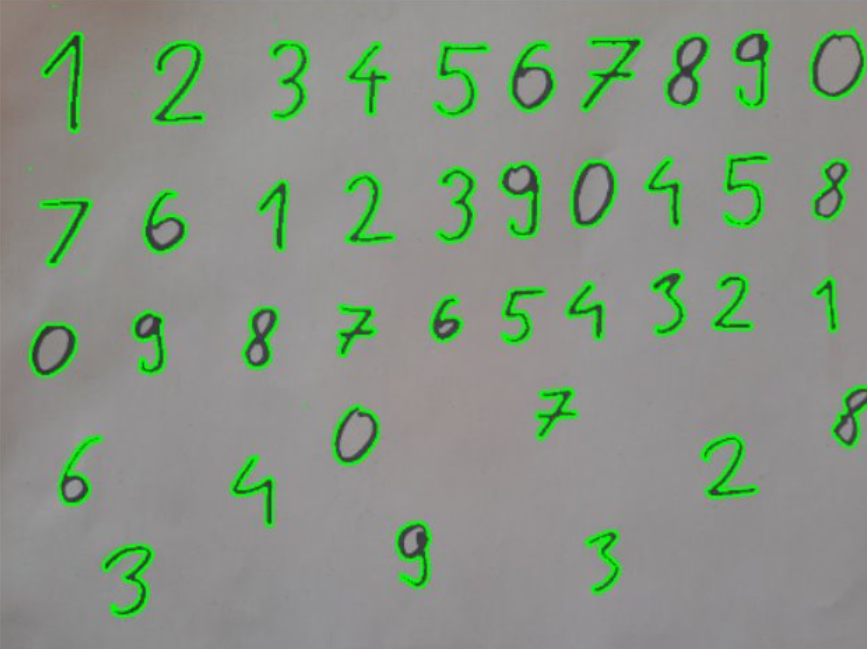 1 2 3 4 5 6 7 8 9 0
7 6 1 2 3 9 0 4 5 8
0 9 8 7 6 5 4 3 2 1
6 4 0 7 2 8
3 9 3